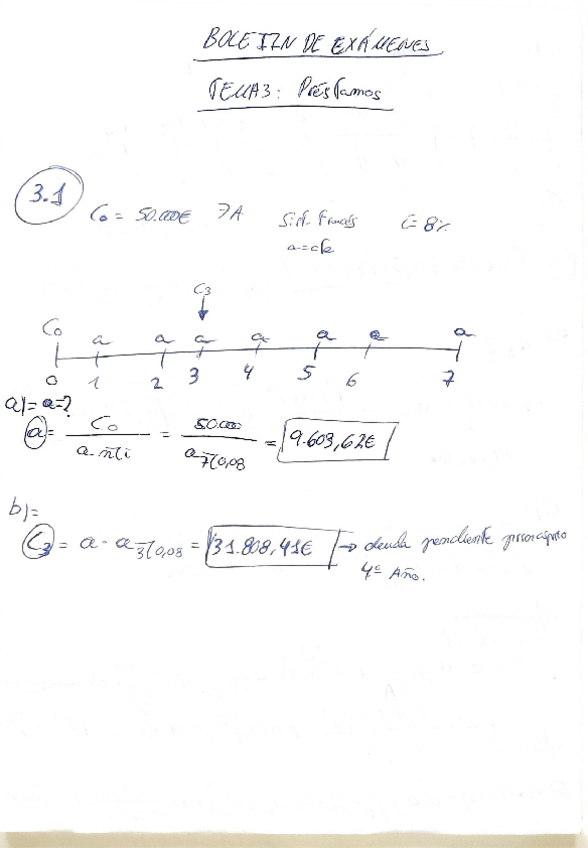 BOLETIZN DE EXÁMENES
TEMA3: PRÉSTamos
3.1
C₀ = 50.000€ 7A Sist. Francés i=8%
a=cte
C₃
C₀ a a a a a a a
0 1 2 3 4 5 6 7
a)= a=?
a = C₀ / a n⌉i = 50.000 / a 7⌉0,08 = 9.603,62€
b)=
C₃ = a · a 3⌉0,08 = 31.808,41€ → deuda pendiente principio
4º Año.